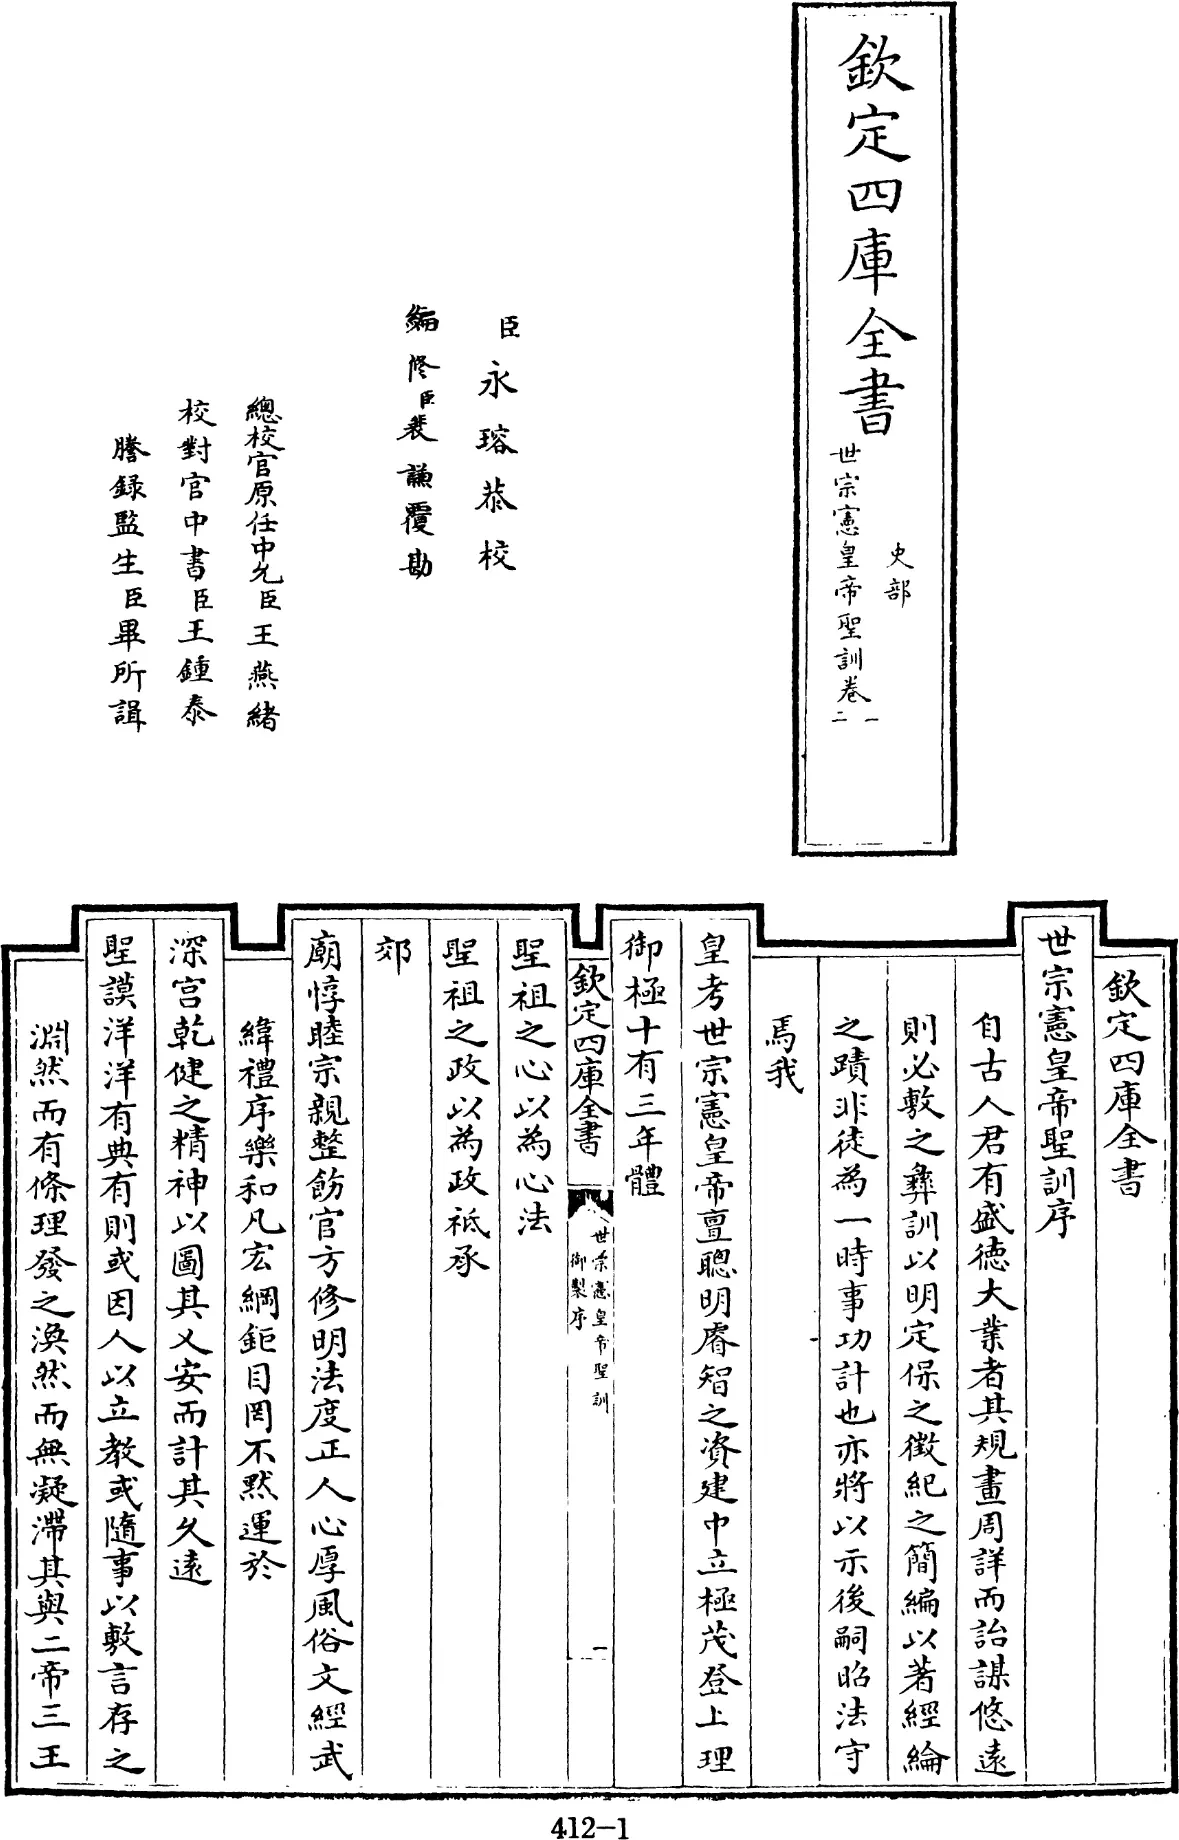 欽定四庫全書
史部
世宗憲皇帝聖訓卷一
二
臣永瑢恭校
編修臣裴謙覆勘
總校官原任中允臣王燕緒
校對官中書臣王鍾泰
謄錄監生臣畢所諿
欽定四庫全書
世宗憲皇帝聖訓序
自古人君有盛德大業者其規畫周詳而詒謀悠遠
則必敷之彝訓以明定保之徵紀之簡編以著經綸
之蹟非徒為一時事功計也亦將以示後嗣昭法守
焉我
皇考世宗憲皇帝亶聰明睿智之資建中立極茂登上理
御極十有三年體
欽定四庫全書
世宗憲皇帝聖訓
御製序
一
聖祖之心以為心法
聖祖之政以為政祗承
郊
廟惇睦宗親整飭官方修明法度正人心厚風俗文經武
緯禮序樂和凡宏綱鉅目罔不默運於
深宮乾健之精神以圖其乂安而計其久遠
聖謨洋洋有典有則或因人以立教或隨事以敷言存之
淵然而有條理發之渙然而無凝滯其與二帝三王
412-1